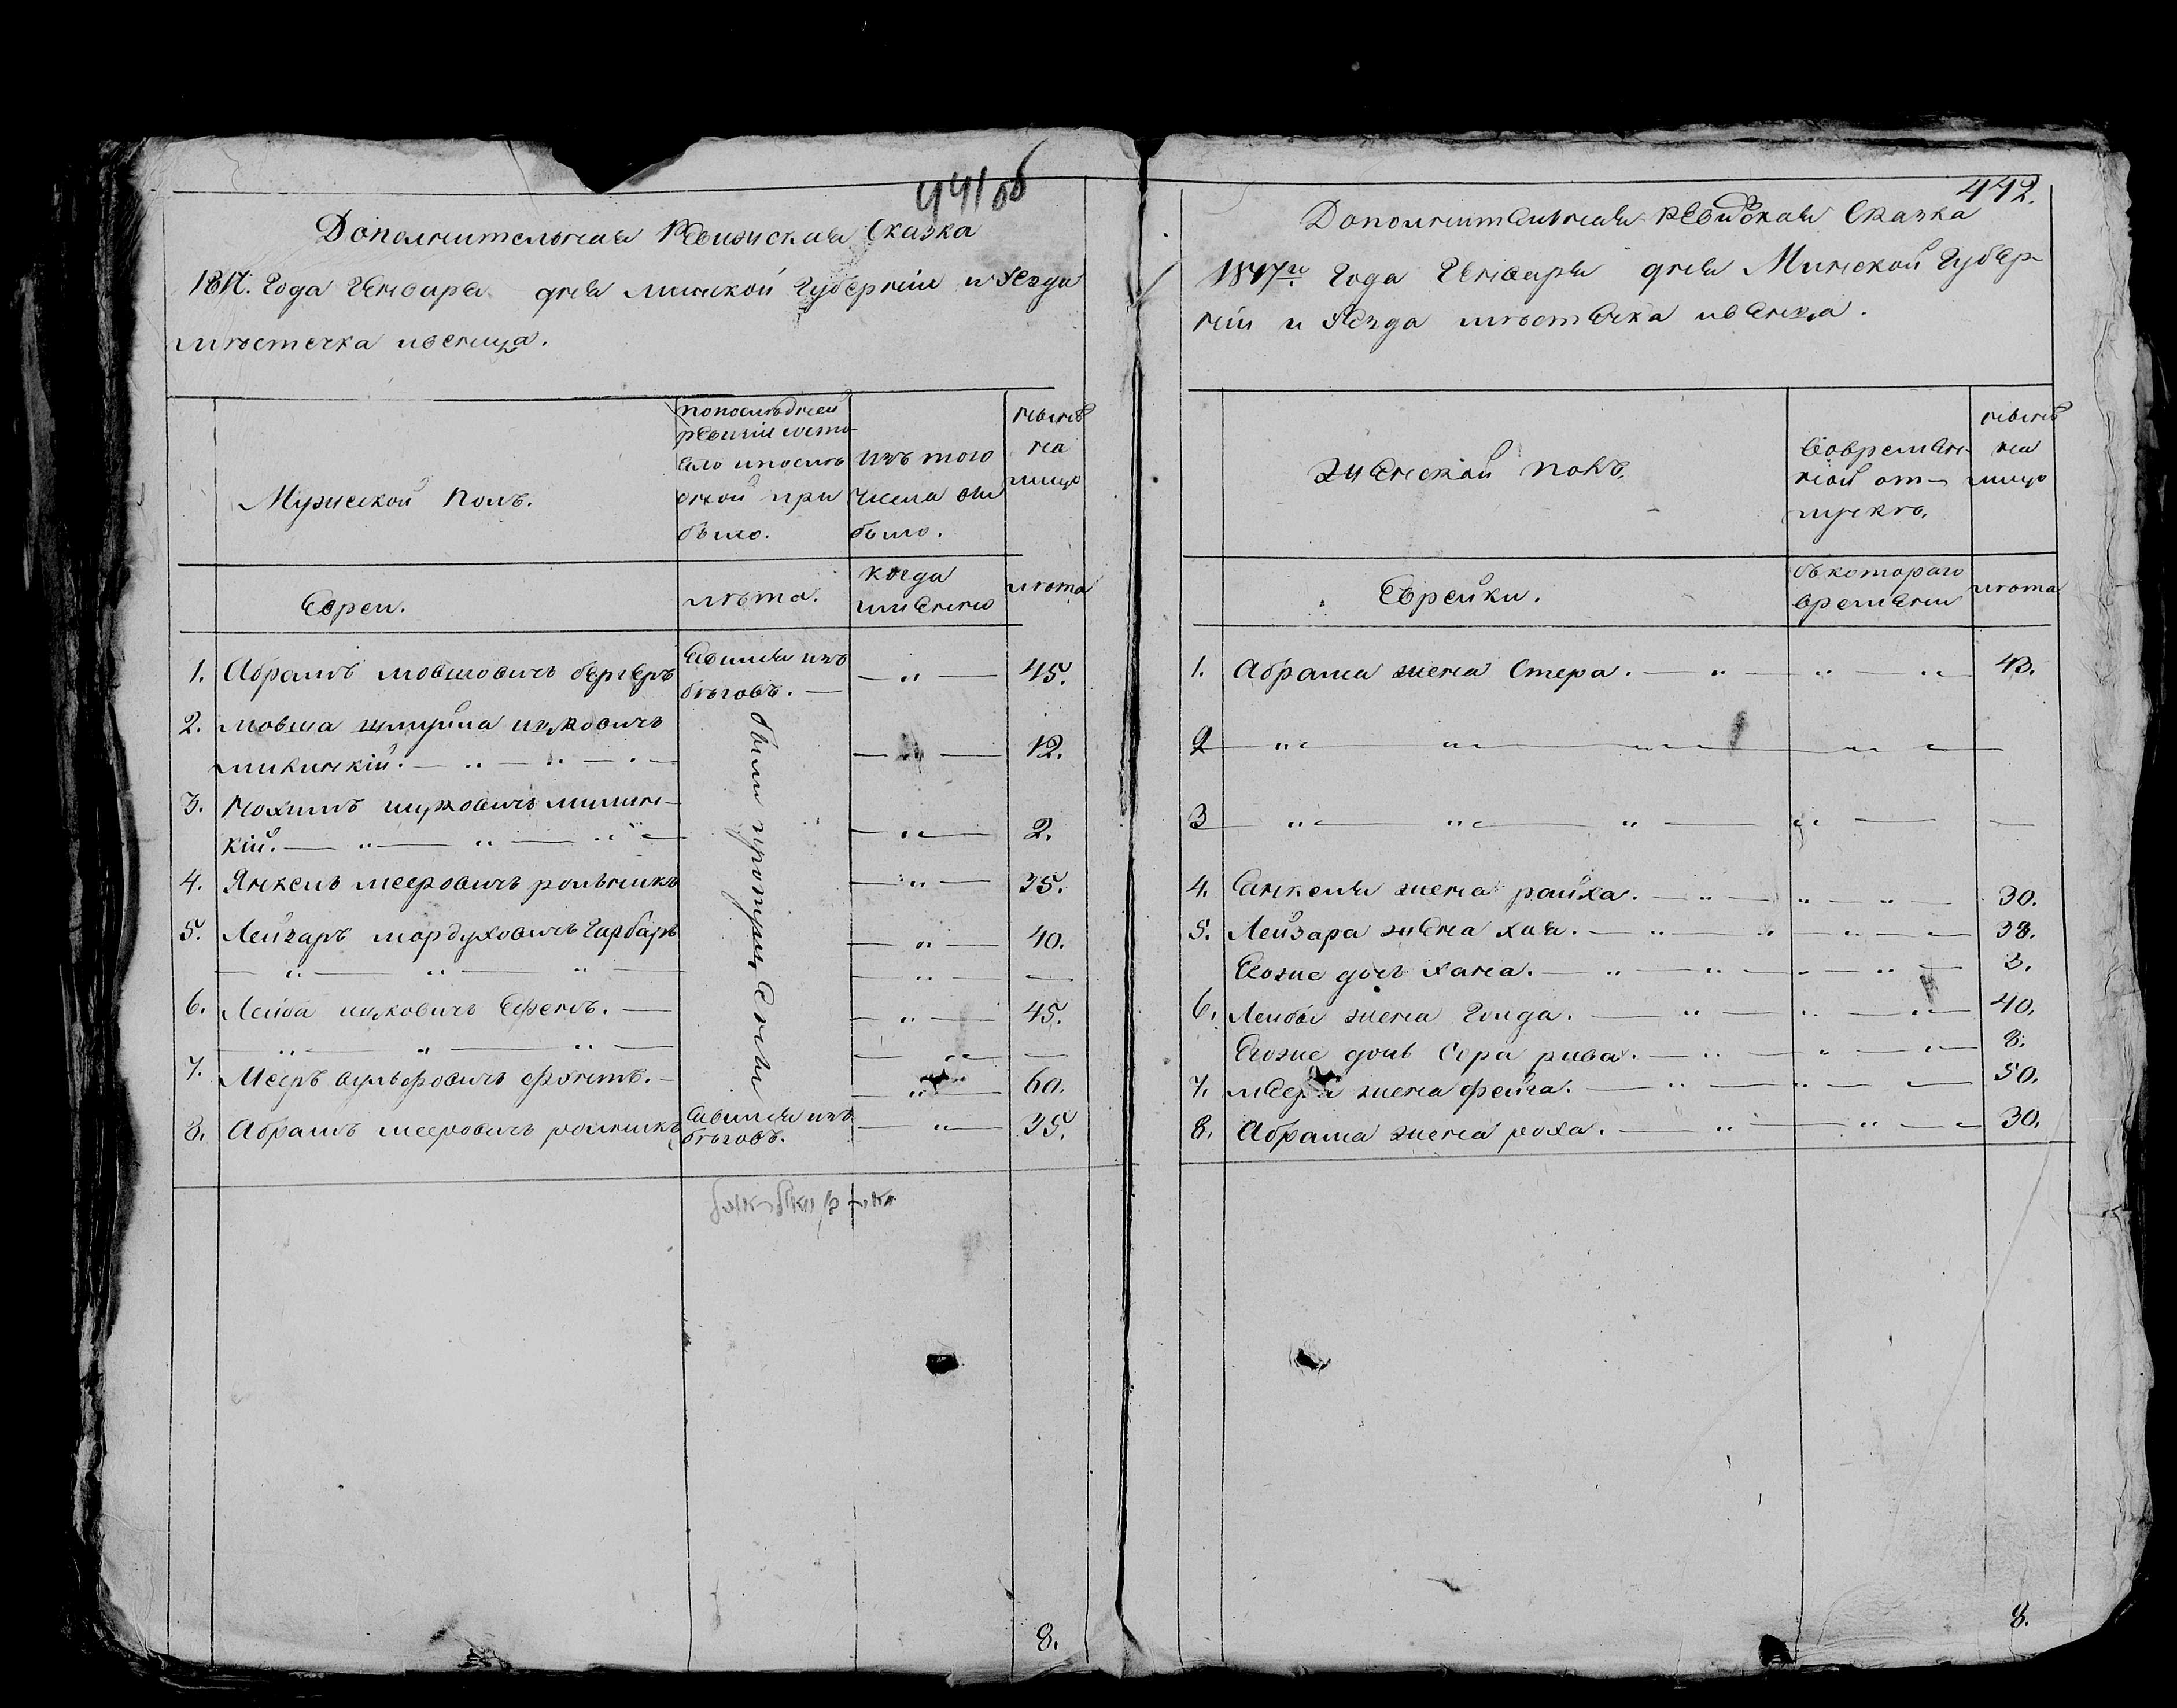 441 об
Дополнительная Ревизская Сказка
1817. Года Генваря дня минской Губернии и уезда
мѣстечка ивенца.
Мужеской Полъ.
по последней
ревизіи состо-
яло и послѣ
оной при
было.
изъ того
числа вы
было.
нынѣ
на
лицо
Евреи.
лѣта.
когда
имѣнно
лѣта
1. Абрамъ мовшовичъ бергеръ
явился изъ
бѣговъ. —
— „ —
45.
2. мовша шлиома ицковичъ
милинскій. — „ — „ — „ —
12.
3. Нохимъ ицковичъ милин-
кій. — „ — „ — „ —
— „ —
2.
4. Янкель мееровичъ рольникъ
— „ —
35.
5. Лейзаръ мордуховичъ Гарбаръ
— „ —
40.
— „ — „ — „ —
— „ — —
6. Лейба ицковичъ Ефенъ. —
— „ —
45.
— „ — „ — „ —
— „ — —
7. Мееръ вульфовичъ
— „ —
60.
8. Абрамъ мееровичъ рольникъ
явился изъ
бѣговъ.
— „ —
35.
были пропущены
8.
442.
Дополнительная ревизская Сказка
1817го Года Генваря дня Минской Губер-
ніи и уезда мѣстечка ивенца.
женской полъ.
Вовремен-
ной от-
лучкѣ.
нынѣ
на
лицо
Еврейки.
съ котораго
времени
лѣта
1. Абрама жена Стера. — „ — „ — „
43.
2 — „ — „ — „ — „ —
3 — „ — „ — „ — „ — —
4. Янкеля жена райха. — „ — „ — „ —
30.
5. Лейзара жена хая. — „ — „ — „ —
38.
Егоже дочь хана. — „ — „ — „ —
3.
6. Лейбы жена Голда. — „ — „ — „
40.
Егоже дочь Сора рива. — „ — „ — „
8.
7. меера жена фейга. — „ — „ —
50.
8. Абрама жена роха. — „ — „ —
30.
8.